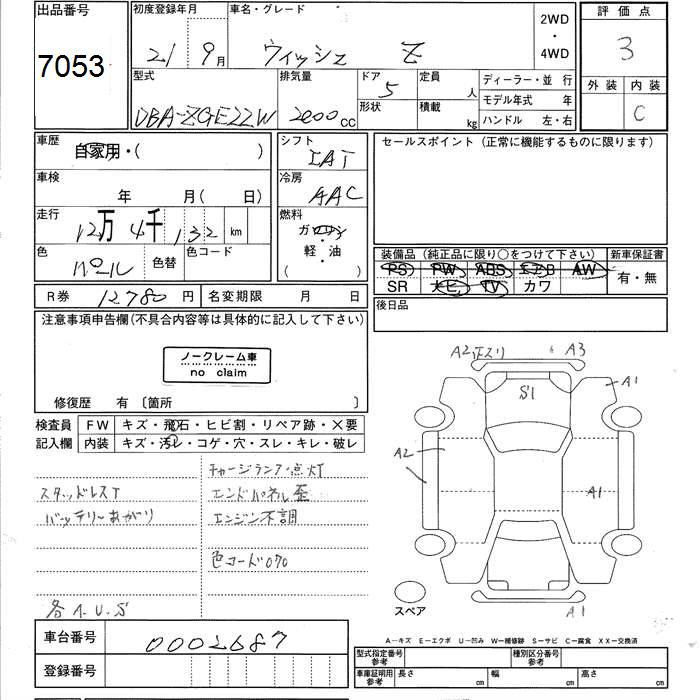 出品番号
7053
初度登録年月
21 9月
車名・グレード
ウィッシュ Z
2WD
・
4WD
評価点
3
外装 内装
C
型式
DBA-ZGE22W
排気量
2000cc
ドア 5
形状
定員 人
積載 kg
ディーラー・並行
モデル年式 年
ハンドル 左・右
車歴
自家用・( )
シフト
IAT
車検
年 月( 日)
冷房
AAC
走行
12万4千132km
燃料
ガソリン
軽・油
( )
色
パール
色替
色コード
R券 12780円
名変期限 月 日
セールスポイント(正常に機能するものに限ります)
装備品(純正品に限り○をつけて下さい)
PS PW ABS エアB AW
SR ナビ TV カワ
新車保証書
有・無
後日品
注意事項申告欄(不具合内容等は具体的に記入して下さい)
ノークレーム車
no claim
修復歴 有〔箇所 〕
検査員
記入欄
FW キズ・飛石・ヒビ割・リペア跡・×要
内装 キズ・汚レ・コゲ・穴・スレ・キレ・破レ
チャージランプ点灯
スタッドレスT
エンドパネル歪
バッテリーあがり
エンジン不調
色コード070
各A.U.S
A2 A3
S1
A1
A2
A1
A1
スペア
A-キズ E-エクボ U-凹み W-補修跡 S-サビ C-腐食 XX-交換済
車台番号
0002687
登録番号
型式指定番号
参考
種別区分番号
参考
車庫証明用
参考
長さ cm
幅 cm
高さ cm